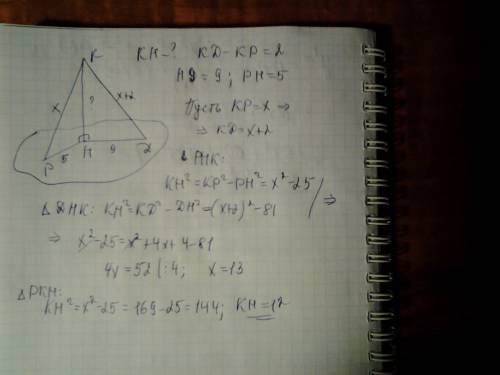 K
KH-? KD-KP=2
HD=9; PH=5
x ? x+2
Пусть KP=x ⇒
⇒ KD=x+2
P 5 H 9 D
△PHK:
KH²=KP²-PH²=x²-25
△DHK: KH²=KD²-DH²=(x+2)²-81 ⇒
⇒ x²-25=x²+4x+4-81
4x=52 |:4; x=13
△PKH:
KH²=x²-25=169-25=144; KH=12